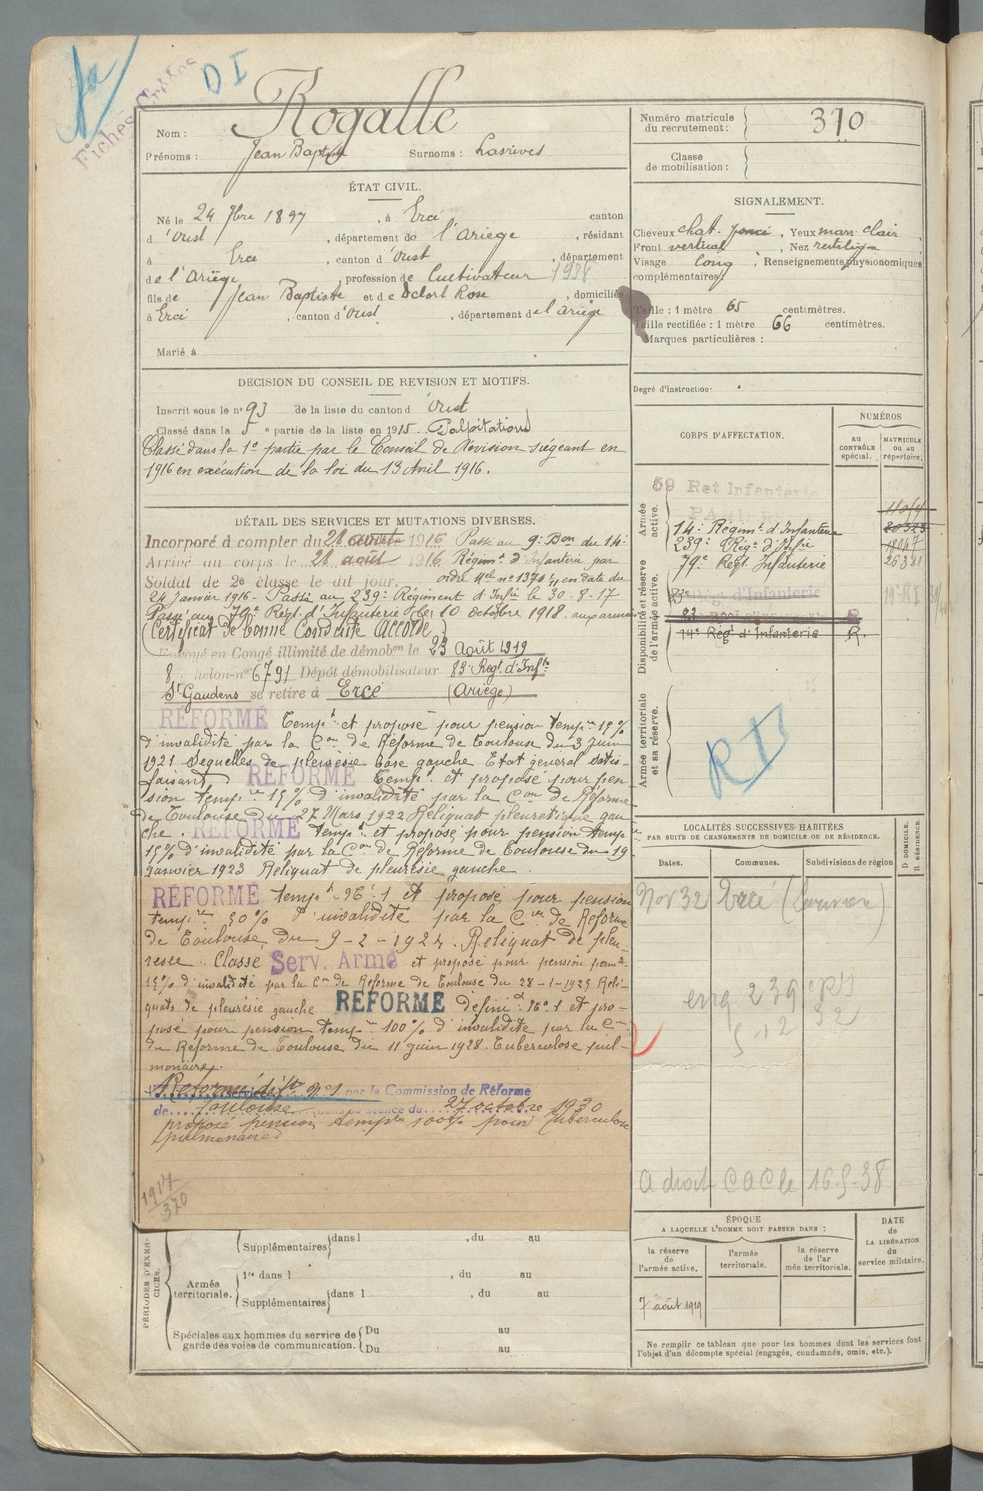 Fiches Créées
D I
Nom : Rogalle
Prénoms : Jean Baptiste Surnoms : Lasrives
Numéro matricule du recrutement : 370
Classe de mobilisation :
ÉTAT CIVIL.
Né le 24 7bre 1897, à Ercé canton
d'Oust, département de l'Ariège, résidant
à Ercé, canton d'Oust, département
de l'Ariège, profession de Cultivateur
fils de Jean Baptiste et de Delort Rose, domiciliés
à Ercé, canton d'Oust, département de l'Ariège
Marié à
SIGNALEMENT.
Cheveux chat. foncé, Yeux marr. clair,
Front vertical, Nez rectiligne
Visage long, Renseignements physionomiques
complémentaires :
Taille : 1 mètre 65 centimètres.
Taille rectifiée : 1 mètre 66 centimètres.
Marques particulières :
Degré d'instruction :
DÉCISION DU CONSEIL DE REVISION ET MOTIFS.
Inscrit sous le n° 93 de la liste du canton d'Oust
Classé dans la 5e partie de la liste en 1915 Palpitations
Classé dans la 1e partie par le Conseil de Révision siégeant en
1916 en exécution de la loi du 13 Avril 1916.
DÉTAIL DES SERVICES ET MUTATIONS DIVERSES.
Incorporé à compter du 28 août 1916 Passé au 9e Bon du 14e
Arrivé au corps le 28 août 1916 Régimt d'Infanterie par
Soldat de 2e classe le dit jour. ordre Mel n° 1370 en date du
24 Janvier 1916 - Passé au 239e Régiment d'Infie le 30-8-17
Passé au 79e Régt d'Infanterie le 10 octobre 1918. aux armées
(Certificat de Bonne Conduite Accordé)
Envoyé en Congé illimité de démobon le 23 Août 1919
8 échelon n° 6791 Dépôt démobilisateur 83e Régt d'Infie
St Gaudens se retire à Ercé (Ariège)
RÉFORMÉ Tempt et proposé pour pension tempre 15%
d'invalidité par la Con de Réforme de Toulouse du 3 juin
1921 Sequelles de pleurésie base gauche Etat général satis-
faisant RÉFORMÉ Tempt et proposé pour pen
sion tempre 15% d'invalidité par la Con de Réforme
de Toulouse du 27 Mars 1922 Reliquat pleurétique gau
che. RÉFORMÉ tempt et proposé pour pension tempre
15% d'invalidité par la Con de Réforme de Toulouse du 19
Janvier 1923 Reliquat de pleurésie gauche.
RÉFORMÉ tempt N° 1 et proposé pour pension
tempre 30% d'invalidité par la Con de Réforme
de Toulouse du 9-2-1924. Reliquat de pleu-
résie. Classé Serv. Armé et proposé pour pension perm.
15% d'invalidité par la Con de Réforme de Toulouse du 28-1-1925 Reli-
quats de pleurésie gauche RÉFORMÉ définit N° 1 et pro-
posé pour pension tempre 100% d'invalidité par la Con
de Réforme de Toulouse du 11 juin 1928. Tuberculose pul-
monaire.
Réformé défve N° 1 par la Commission de Réforme
de Toulouse dans sa séance du 27 octobre 1930
proposé pension tempre 100% pour tuberculose
pulmonaire
1917
370
CORPS D'AFFECTATION.
NUMÉROS
AU CONTRÔLE spécial.
MATRICULE OU AU répertoire.
Armée active.
59 Ret Infanterie
14e Régimt d'Infanterie
239e Régt d'Infie
79e Régt Infanterie
Disponibilité et réserve de l'armée active.
83e Rég. d'Infanterie
14e Régt d'Infanterie R.
Armée territoriale et sa réserve.
LOCALITÉS SUCCESSIVES HABITÉES
PAR SUITE DE CHANGEMENTS DE DOMICILE OU DE RÉSIDENCE.
Dates. Communes. Subdivisions de région
D. DOMICILE. R. RÉSIDENCE.
Nov 32 Ercé
A droit CAC le 16-5-38
ÉPOQUE
A LAQUELLE L'HOMME DOIT PASSER DANS :
la réserve de l'armée active.
l'armée territoriale.
la réserve de l'armée territoriale.
DATE de LA LIBÉRATION du service militaire.
7 août 1919
Ne remplir ce tableau que pour les hommes dont les services font
l'objet d'un décompte spécial (engagés, condamnés, omis, etc.).
PÉRIODES D'EXERCICES.
Supplémentaires dans l , du au
Armée territoriale.
1re dans l , du au
Supplémentaires dans l , du au
Spéciales aux hommes du service de garde des voies de communication.
Du au
Du au